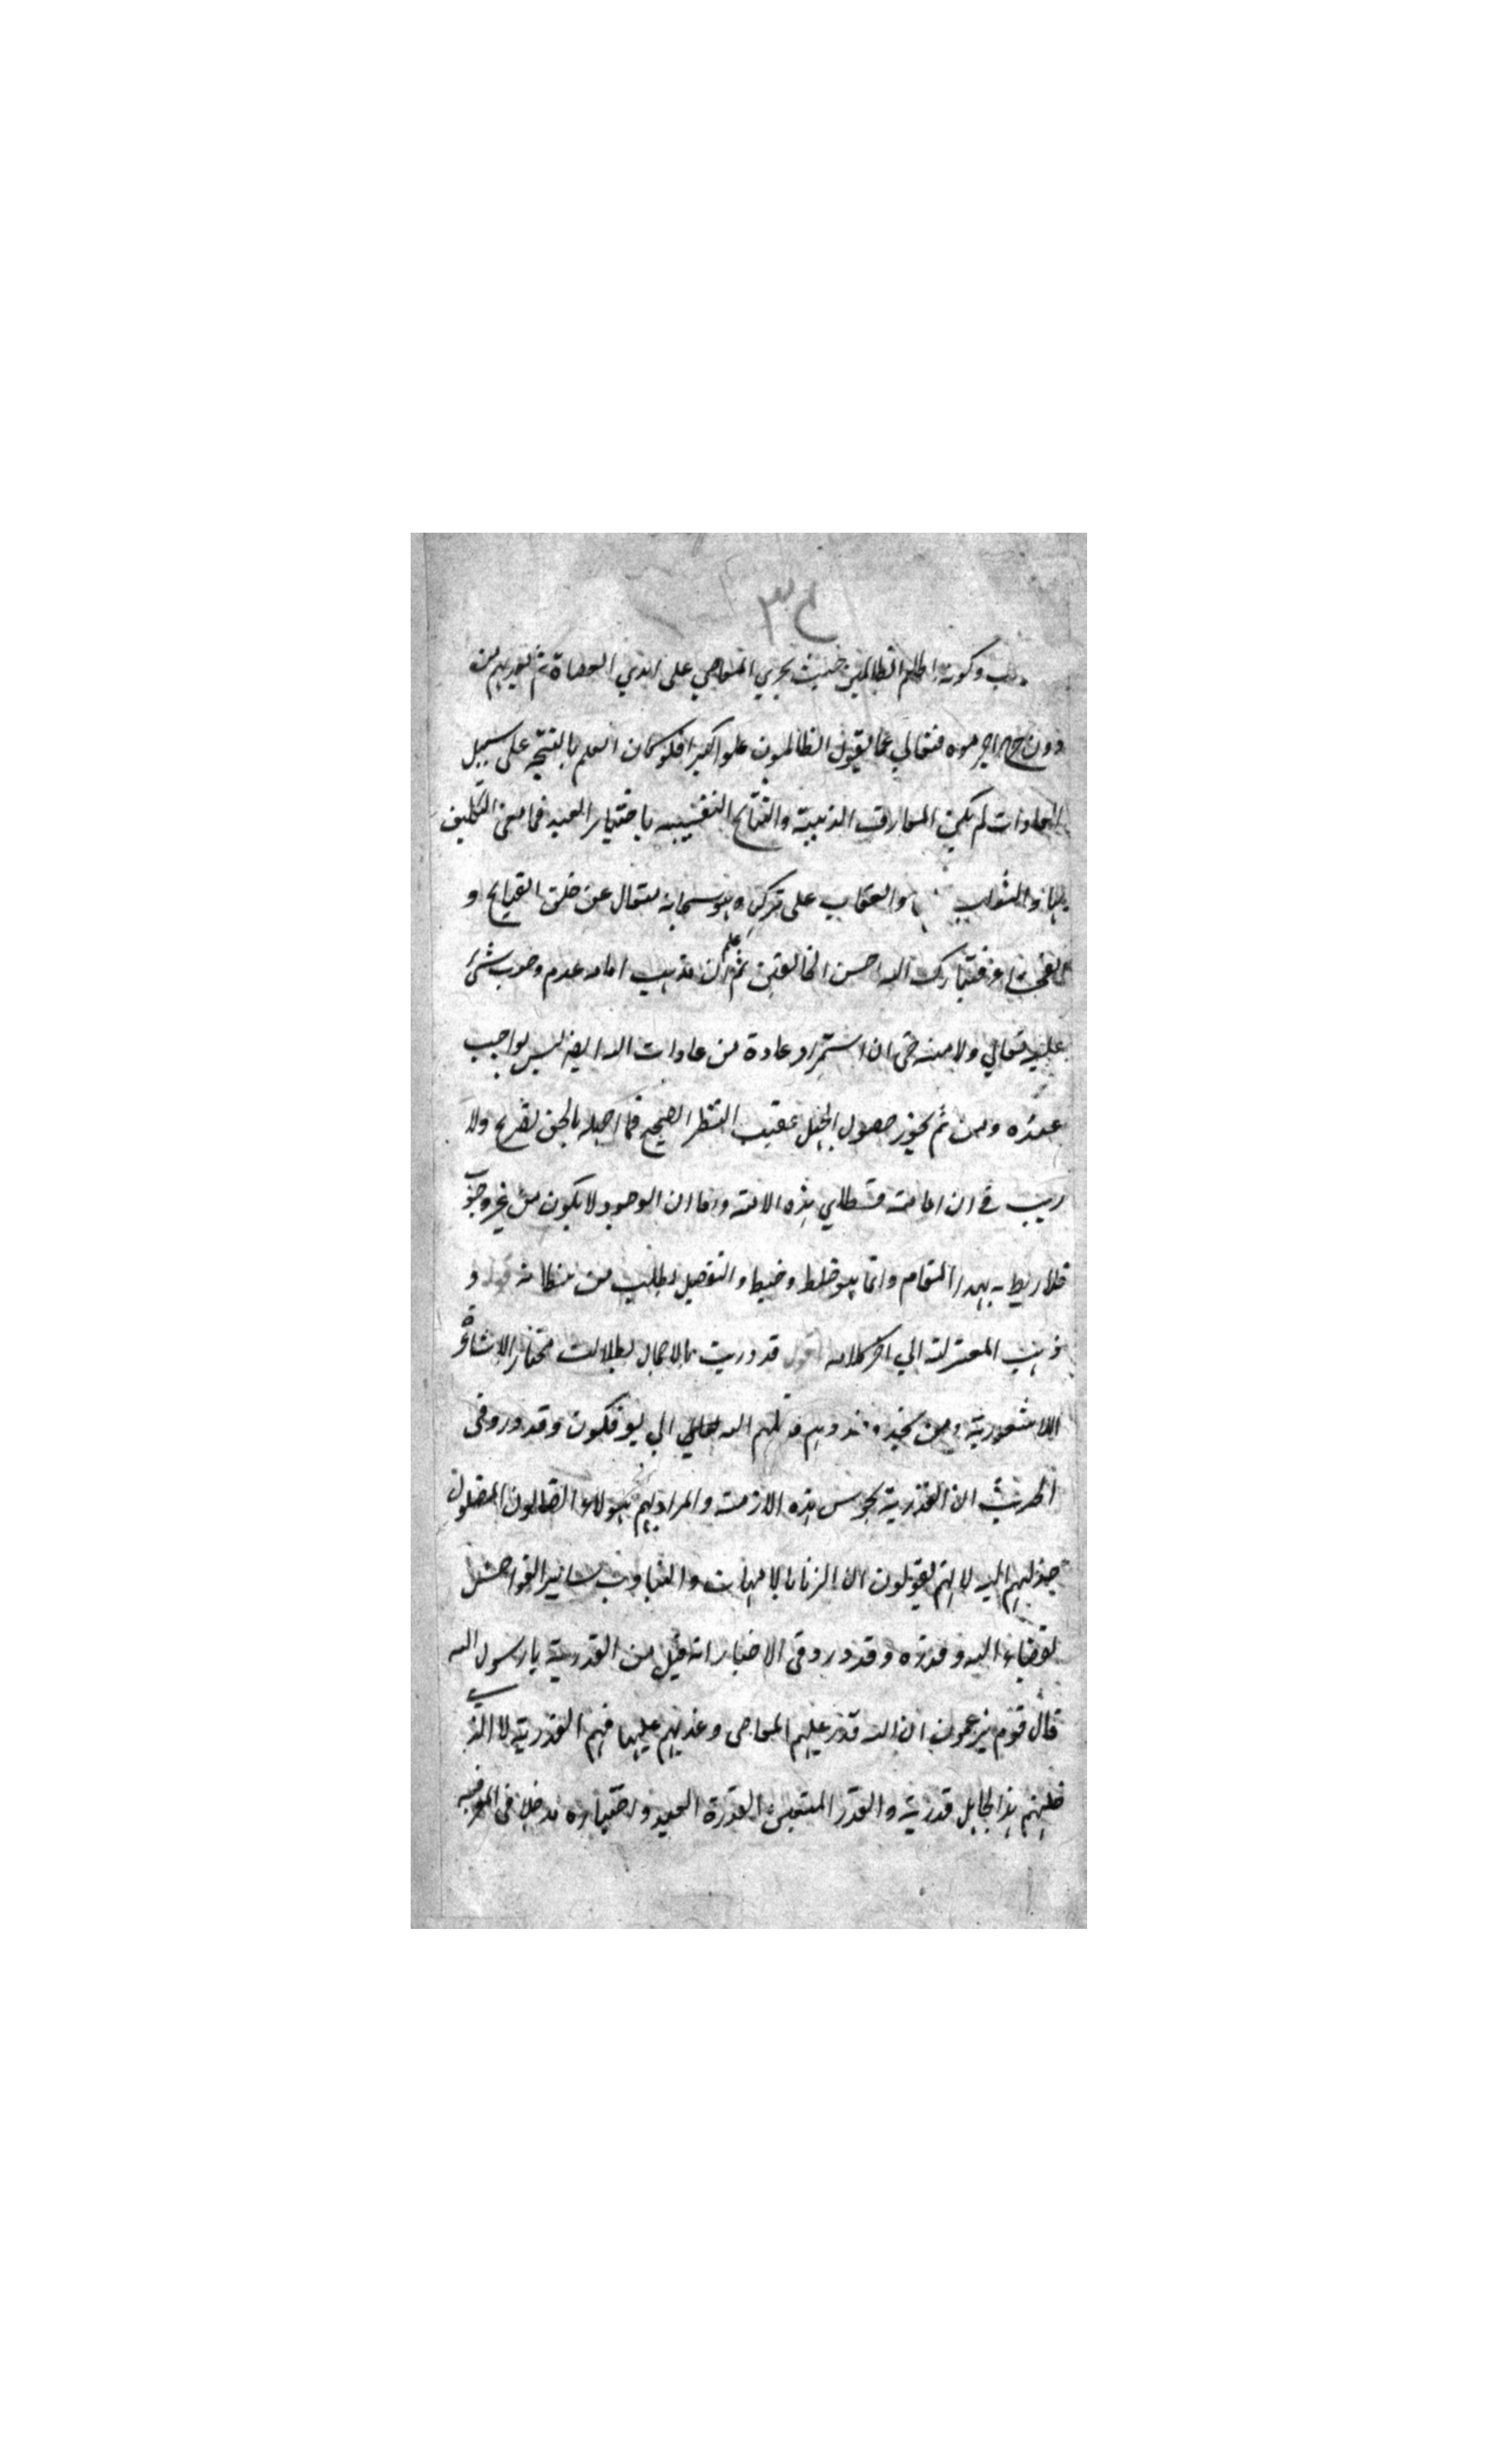 وكونه اظلم الظالمين حيث يجري المعاصي على ايدي العصاة ثم يعذبهم من
دون جرم اجرموه فتعالي عما يقول الظالمون علوا كبيرا فلو كان العلم بالنتيجة على سبيل
العادات لم يكن المعارف الدينية والنتائج باختيار العبد فما معنى التكليف
بها والثواب والعقاب على تركه وهو سبحانه متعال عن خلق القبايح و
فتبارك الله احسن الخالقين ثم اعلم ان مذهب امامه عدم وجوب شئ
عليه تعالي ولا منه حتى ان استمرار عادة من عادات الله ايضا ليس بواجب
عنده ومن ثم يجوز حصول الجهل عقيب النظر الصحيح فما ولا
ريب في ان هذه الامة واما ان الوجود لا يكون من غير وجوب
فلا ربط له بهذا المقام وانما هو خلط وخبط والتفصيل يطلب من مظانه قوله و
ذهب المعتزلة الي اخر كلامه اقول قد دريت بالاجمال بطلان مختار الاشاعرة
الاشعرية ومن يحذو حذوهم قاتلهم الله تعالي اني يوفكون وقد ورد في
الحديث ان القدرية مجوس هذه الامة والمراد بهم هولاء الضالون المضلون
خذلهم الله لانهم يقولون ان الزنا بالامهات والبنات وساير الفواحش
بقضاء الله وقدره وقد ورد في الاخبار انه قيل من القدرية يا رسول الله
قال قوم يزعمون ان الله قدر عليهم المعاصي وعذبهم عليها فهم القدرية لا الذي
ظنهم هذا الجاهل قدرية والقدر المتيقن ان لقدرة العبد واختياره مدخلا في